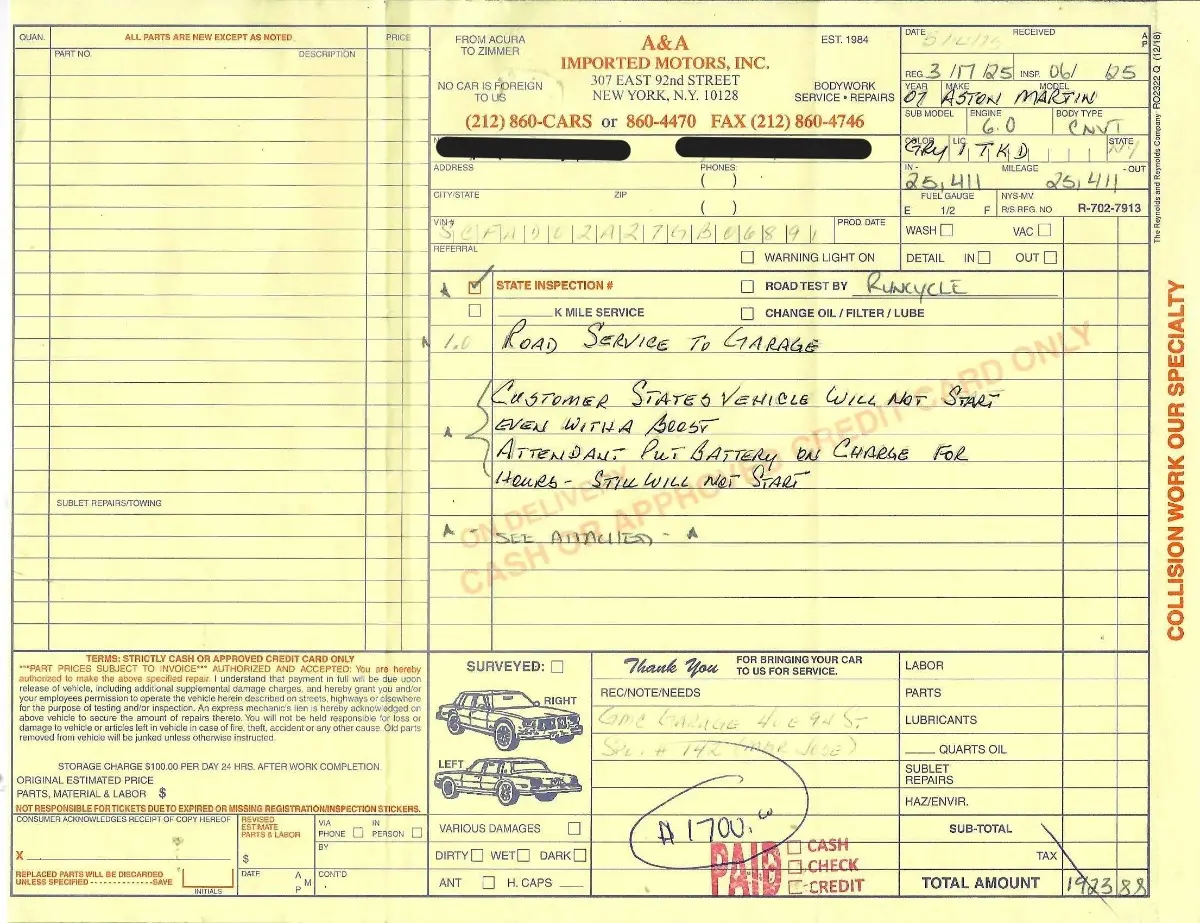 QUAN.
ALL PARTS ARE NEW EXCEPT AS NOTED.
PRICE
PART NO.
DESCRIPTION
SUBLET REPAIRS/TOWING
FROM ACURA
TO ZIMMER
NO CAR IS FOREIGN
TO US
A&A
IMPORTED MOTORS, INC.
307 EAST 92nd STREET
NEW YORK, N.Y. 10128
EST. 1984
BODYWORK
SERVICE • REPAIRS
(212) 860-CARS or 860-4470 FAX (212) 860-4746
ADDRESS
PHONES:
( )
CITY/STATE
ZIP
( )
VIN#
PROD. DATE
REFERRAL
DATE
RECEIVED
A
P
REG. 3/17/25 INSP. 06/ /25
YEAR MAKE MODEL
07 ASTON MARTIN
SUB MODEL ENGINE BODY TYPE
6.0 CNVT
COLOR LIC STATE
GRY 1TKD NY
IN - MILEAGE - OUT
25,411 25,411
FUEL GAUGE
E 1/2 F
NYS-MV
R/S REG. NO R-702-7913
WASH VAC
DETAIL IN OUT
WARNING LIGHT ON
A STATE INSPECTION #
ROAD TEST BY RUNCYCLE
K MILE SERVICE
CHANGE OIL / FILTER / LUBE
1.0 ROAD SERVICE TO GARAGE
CUSTOMER STATES VEHICLE WILL NOT START
EVEN WITH A BOOST
A
ATTENDANT PUT BATTERY ON CHARGE FOR
HOURS - STILL WILL NOT START
A - SEE ATTACHED - A
ON DELIVERY
CASH OR APPROVED CREDIT CARD ONLY
The Reynolds and Reynolds Company RO2322 Q (12/18)
COLLISION WORK OUR SPECIALTY
TERMS: STRICTLY CASH OR APPROVED CREDIT CARD ONLY
***PART PRICES SUBJECT TO INVOICE*** AUTHORIZED AND ACCEPTED: You are hereby
authorized to make the above specified repair. I understand that payment in full will be due upon
release of vehicle, including additional supplemental damage charges, and hereby grant you and/or
your employees permission to operate the vehicle herein described on streets, highways or elsewhere
for the purpose of testing and/or inspection. An express mechanic's lien is hereby acknowledged on
above vehicle to secure the amount of repairs thereto. You will not be held responsible for loss or
damage to vehicle or articles left in vehicle in case of fire, theft, accident or any other cause. Old parts
removed from vehicle will be junked unless otherwise instructed.
STORAGE CHARGE $100.00 PER DAY 24 HRS. AFTER WORK COMPLETION.
ORIGINAL ESTIMATED PRICE
PARTS, MATERIAL & LABOR $
NOT RESPONSIBLE FOR TICKETS DUE TO EXPIRED OR MISSING REGISTRATION/INSPECTION STICKERS.
CONSUMER ACKNOWLEDGES RECEIPT OF COPY HEREOF
X
REPLACED PARTS WILL BE DISCARDED
UNLESS SPECIFIED - - - - - - - - - - - - - - -SAVE
INITIALS
REVISED
ESTIMATE
PARTS & LABOR
$
DATE
A
P M
VIA
PHONE
IN
PERSON
BY
CONT'D
SURVEYED:
RIGHT
LEFT
VARIOUS DAMAGES
DIRTY WET DARK
ANT H. CAPS
Thank You
FOR BRINGING YOUR CAR
TO US FOR SERVICE.
REC/NOTE/NEEDS
GMC GARAGE
$1700.00
PAID
CASH
CHECK
CREDIT
LABOR
PARTS
LUBRICANTS
QUARTS OIL
SUBLET
REPAIRS
HAZ/ENVIR.
SUB-TOTAL
TAX
TOTAL AMOUNT 1923 88